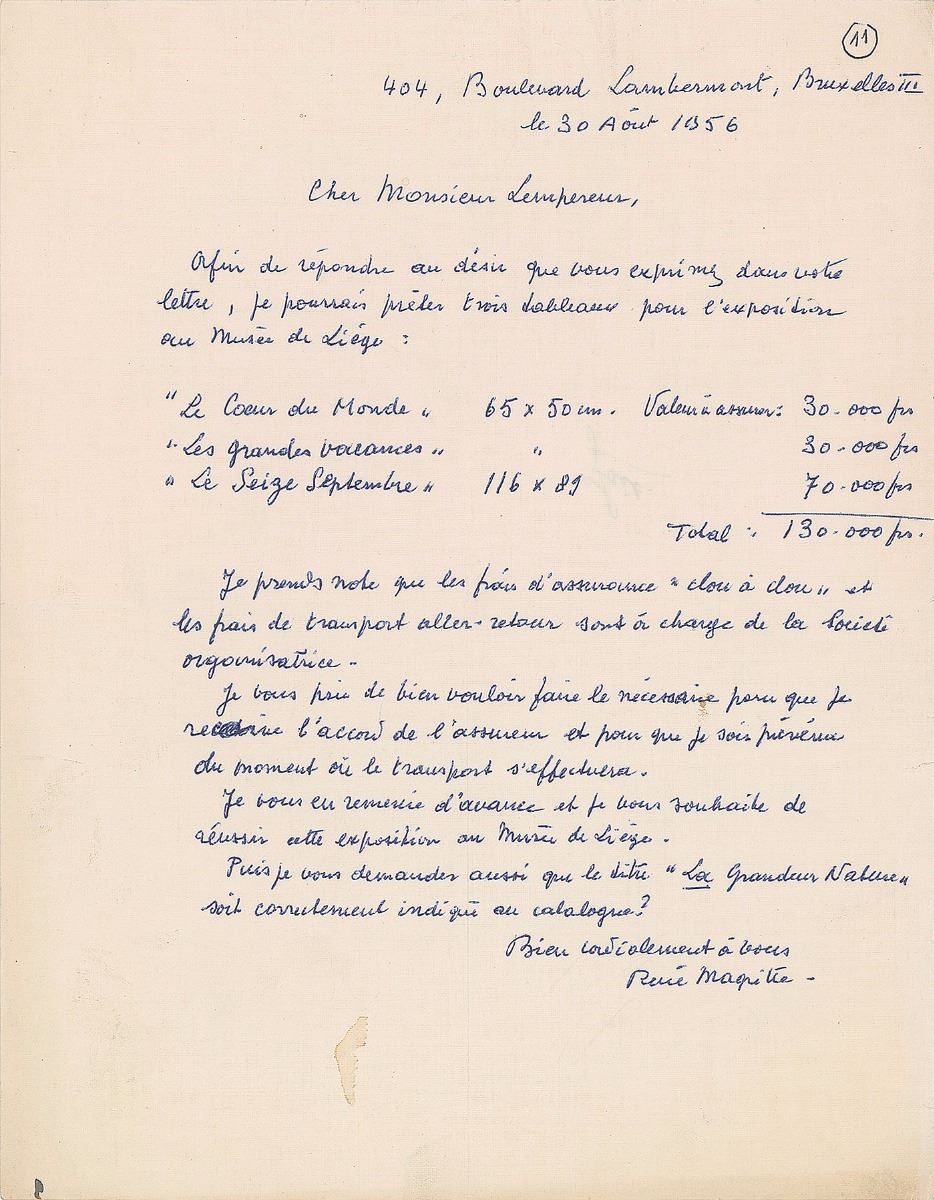 11
404, Boulevard Lambermont, Bruxelles III
le 30 Août 1956
Cher Monsieur Lempereur,
Afin de répondre au désir que vous exprimez dans votre
lettre, je pourrais prêter trois tableaux pour l'exposition
au Musée de Liége :
"Le Coeur du Monde" 65 x 50 cm. Valeur à assurer : 30.000 frs
"Les grandes vacances" " 30.000 frs
"Le Seize Septembre" 116 x 89 70.000 frs
Total : 130.000 frs.
Je prends note que les frais d'assurance "clou à clou" et
les frais de transport aller-retour sont à charge de la Société
organisatrice -
Je vous prie de bien vouloir faire le nécessaire pour que je
reçoive l'accord de l'assureur et pour que je sois prévenu
du moment où le transport s'effectuera.
Je vous en remercie d'avance et je vous souhaite de
réussir cette exposition au Musée de Liége.
Puis je vous demander aussi que le titre "La Grandeur Nature"
soit correctement indiqué au catalogue?
Bien cordialement à vous
René Magritte -